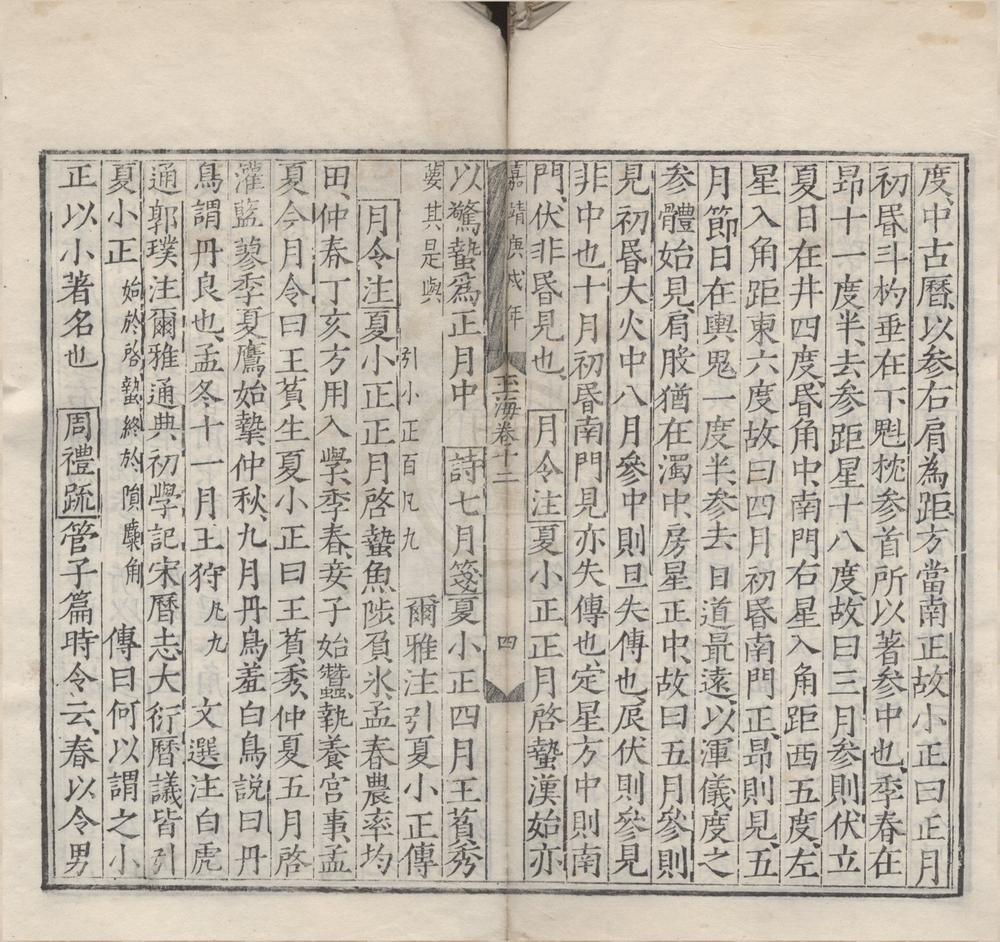 度中古曆以参右肩為距方當南正故小正曰正月
初昬斗杓垂在下魁枕参首所以著参中也季春在
昴十一度半去参距星十八度故曰三月参則伏立
夏日在井四度昬角中南門右星入角距西五度左
星入角距東六度故曰四月初昬南門正昴則見五
月節日在輿鬼一度半参去日道最遠以渾儀度之
参體始見肩股猶在濁中房星正中故曰五月參則
見初昬大火中八月參中則旦失傳也辰伏則參見
非中也十月初昬南門見亦失傳也定星方中則南
門伏非昬見也 月令注夏小正正月啓蟄漢始亦
嘉靖庚戌年 玉海卷十二 四
以驚蟄爲正月中 詩七月箋夏小正四月王萯秀
葽其是與 引小正百凡九 爾雅注引夏小正傳
月令注夏小正正月啓蟄魚陟負氷孟春農率均
田仲春丁亥方用入學季春妾子始蠶執養宫事孟
夏今月令曰王萯生夏小正曰王萯秀仲夏五月啓
灌藍蓼季夏鷹始摯仲秋九月丹鳥羞白鳥説曰丹
鳥謂丹良也孟冬十一月王狩 凡九 文選注白虎
通郭璞注爾雅通典初學記宋曆志大衍曆議皆引
夏小正 始於啓蟄終於隕麋角 傳曰何以謂之小
正以小著名也 周禮䟽管子篇時令云春以令男